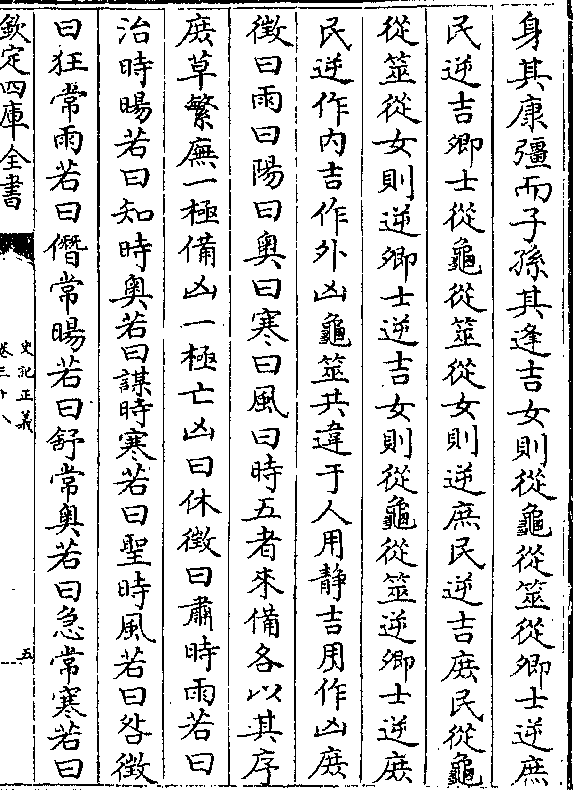 身其康彊而子孫其逢吉女則從龜從筮從卿士逆庶
民逆吉卿士從龜從筮從女則逆庶民逆吉庶民從龜
從筮從女則逆卿士逆吉女則從龜從筮逆卿士逆庶
民逆作内吉作外凶龜筮共違于人用靜吉用作凶庶
徵曰雨曰陽曰奥曰寒曰風曰時五者來備各以其序
庶草繁廡一極備凶一極亡凶曰休徴曰肅時雨若曰
治時暘若曰知時奥若曰謀時寒若曰聖時風若曰咎徴
曰狂常雨若曰僭常暘若曰舒常奥若曰急常寒若曰
欽定四庫全書
史記正義
卷三十八
五